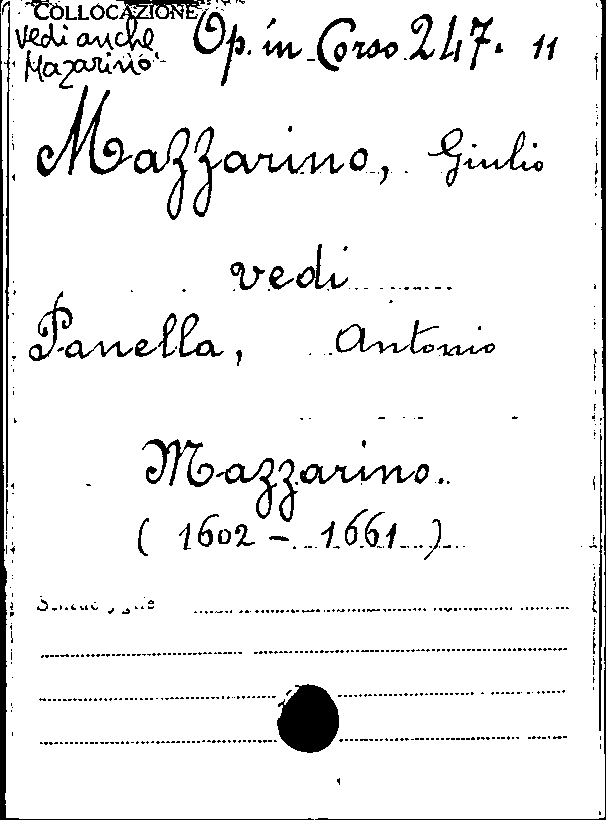 COLLOCAZIONE
vedi anche
Mazarino
Op. in Corso 247. 11
Mazzarino, Giulio
vedi
Panella, Antonio
Mazzarino.
( 1602 - 1661 )